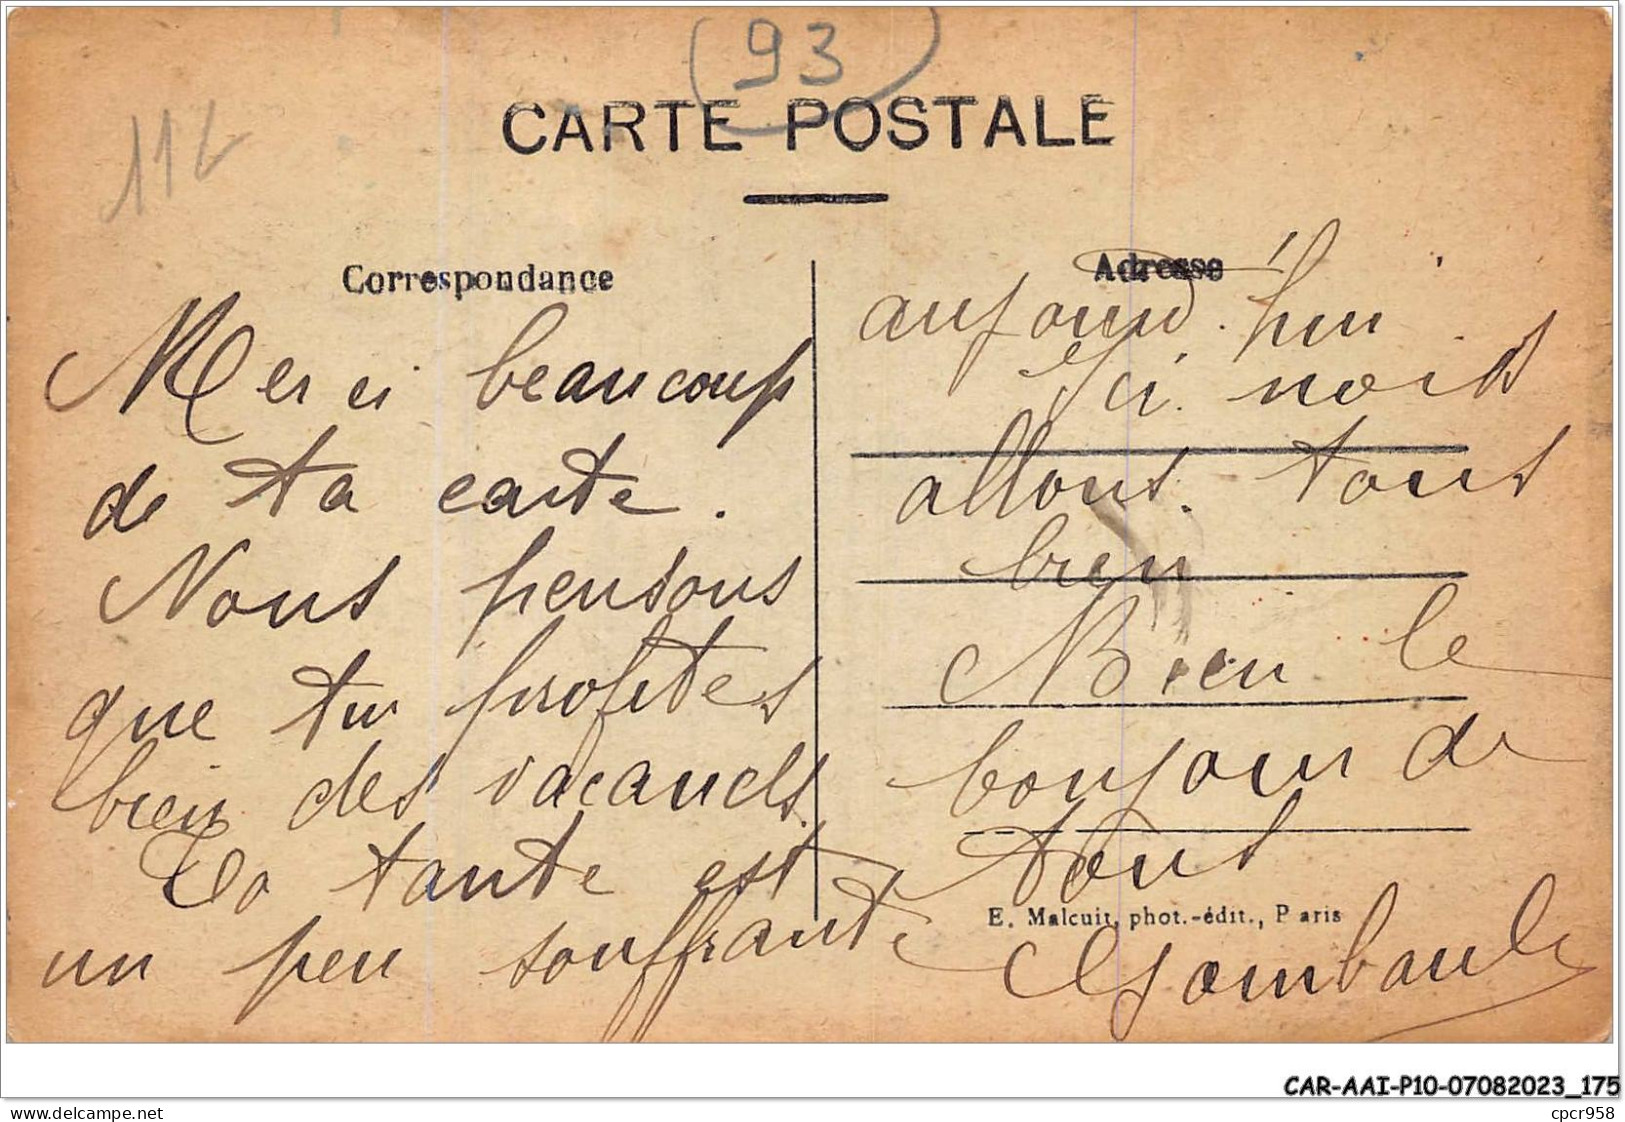 (93)
CARTE POSTALE
Correspondance
Merci beaucoup
de ta carte.
Nous pensons
que tu profites
bien des vacances.
Ta tante est
un peu souffrante
Adresse
aujourd'hui
Ici nous
allons tous
bien
Bien le
bonjour de
tous
E. Malcuit, phot.-édit., Paris
Gombault
CAR-AAI-P10-07082023_175
www.delcampe.net
cpcr958